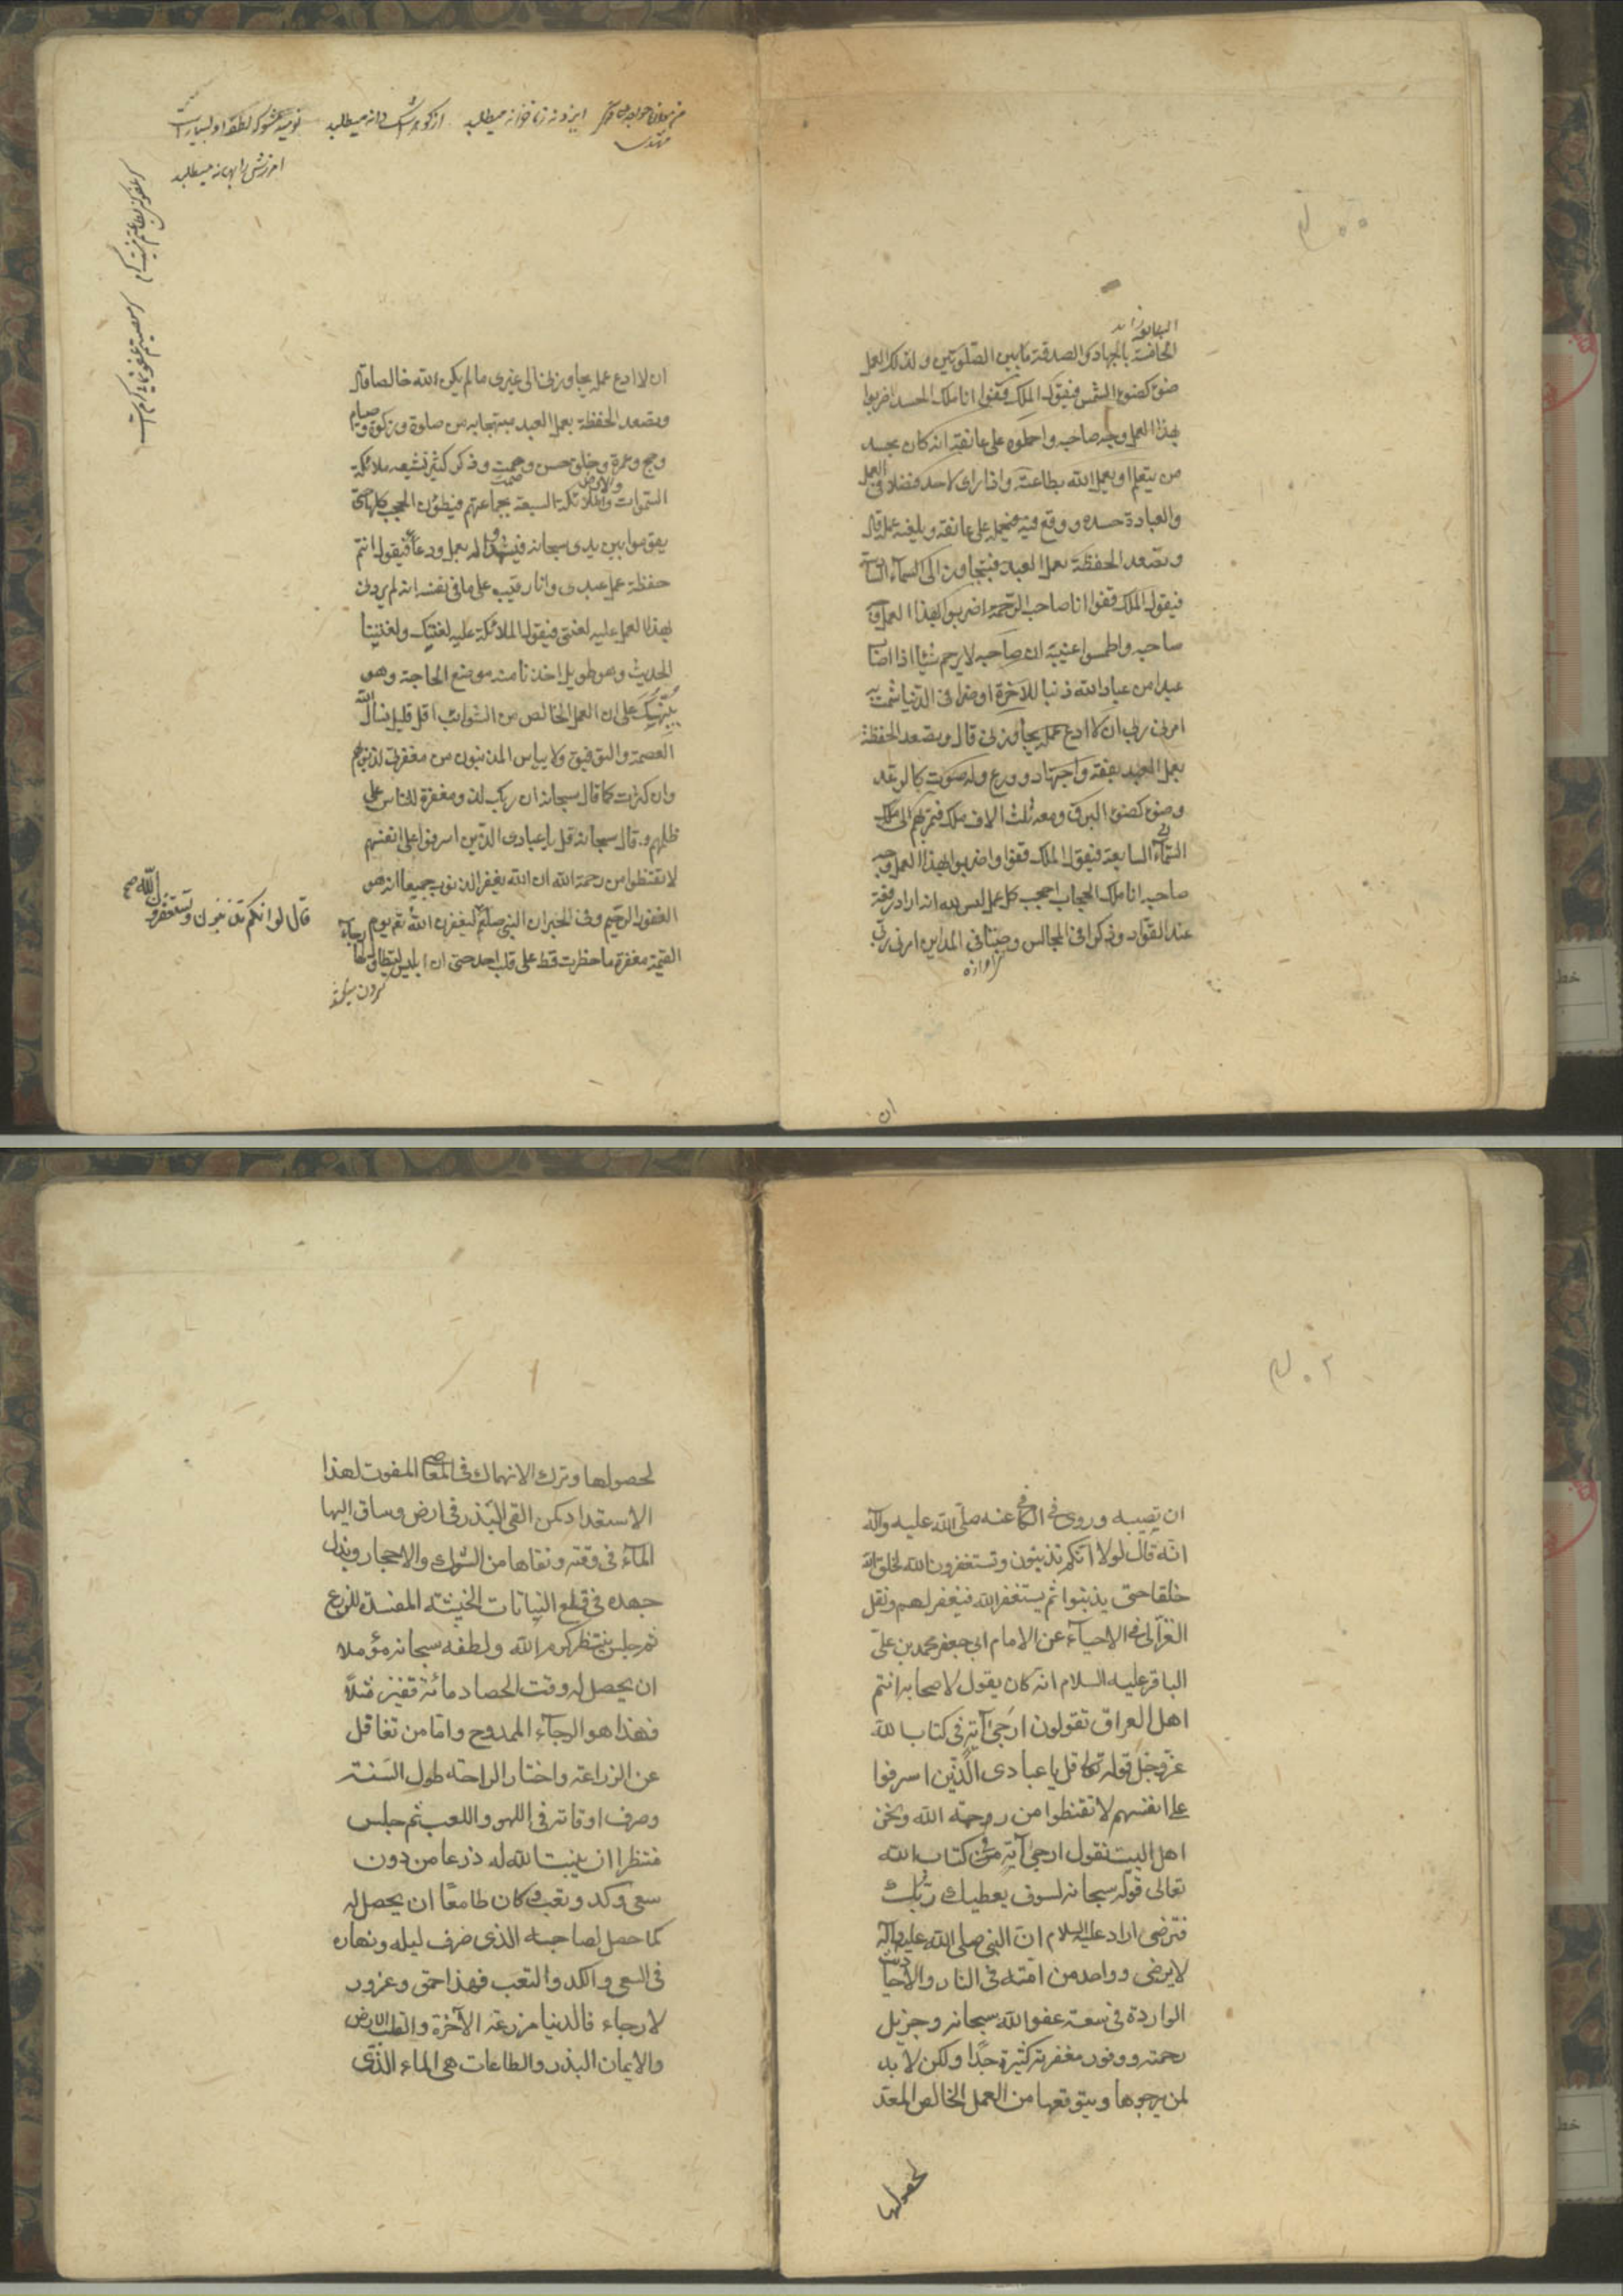 الحافتة بالجهاد والصدقة مابين الصّلوتين ولذلك العمل
ضوء كضوء الشمس فيقول الملك قفوا انا ملك الحسد اضربوا
بهذا العمل وجه صاحبه واحملوه على عاتقه انه كان يحسد
من يتعلم او يعمل الله بطاعته واذا راى لاحد فضلا فى العمل
والعبادة حسده ووقع فيه فيحمله على عاتقه ويلعنه عمله قال
وتصعد الحفظة بعمل العبد فيتجاوز الى السماء السادسة
فيقول الملك قفوا انا صاحب الرحمة اضربوا بهذا العمل وجه
صاحبه واطمسوا عينيه ان صاحبه لا يرحم شيئا اذا اصاب
عبدا من عباد الله ذنبا للآخرة او ضرا فى الدنيا شمت به
امرنى ربى ان لا ادع عمله يجاوزنى قال وتصعد الحفظة
بعمل العبد بفقه واجتهاد وورع وله صوت كالرعد
وضوء كضوء البرق ومعه ثلث الاف ملك فتمر بهم الى ملك
السماء السابعة فيقول الملك قفوا واضربوا بهذا العمل وجه
صاحبه انا ملك الحجاب احجب كل عمل ليس لله انه اراد رفعة
عند القواد وذكرا فى المجالس وصيتا فى المداين امرنى ربى
ان
ان لا ادع عمله يجاوزنى الى غيرى ما لم يكن الله خالصا قال
وتصعد الحفظة بعمل العبد مبتهجا به من صلوة وزكوة وصيام
وحج وعمرة وخلق حسن وصمت وذكر كثير تشيعه ملائكة
السموات والملائكة السبعة بجماعتهم فيطؤن الحجب كلها حتى
يقوموا بين يدى سبحانه فيشهدوا له بعمل ودعاء فيقول انتم
حفظة عمل عبدى وانا رقيب على ما فى نفسه انه لم يردنى
بهذا العمل عليه لعنتى فيقول الملائكة عليه لعنتك ولعنتنا
الحديث وهو طويل اخذنا منه موضع الحاجة وهو
ينبهك على ان العمل الخالص من الشوائب اقل قليل نسال الله
العصمة والتوفيق ولا يياس المذنبون من مغفرة ذنوبهم
وان كثرت كما قال سبحانه ان ربك لذو مغفرة للناس على
ظلمهم وقال سبحانه قل يا عبادى الذين اسرفوا على انفسهم
لا تقنطوا من رحمة الله ان الله يغفر الذنوب جميعا انه هو
الغفور الرحيم وفى الخبر ان النبى صلعم ليغفرن الله تع يوم
القيمة مغفرة ما خطرت قط على قلب احد حتى ان ابليس ليتطاول لها رجاء
قال لو انكم تذنبون وتستغفرون الله صح
ان تصيبه وروى فى الكافى عنه صلى الله عليه وآله
انه قال لولا انكم تذنبون وتستغفرون الله لخلق الله
خلقا حتى يذنبوا ثم يستغفر الله فيغفر لهم ونقل
الغزالى فى الاحياء عن الامام ابى جعفر محمد بن على
الباقر عليه السلام انه كان يقول لاصحابه انتم
اهل العراق تقولون ارجى آية فى كتاب الله
عز وجل قوله تعالى قل يا عبادى الذين اسرفوا
على انفسهم لا تقنطوا من رحمة الله ونحن
اهل البيت نقول ارجى آية فى كتاب الله
تعالى قوله سبحانه لسوف يعطيك ربك
فترضى اراد عليه السلام ان النبى صلى الله عليه وآله
لا يرضى وواحد من امته فى النار والاحاديث
الواردة فى سعة عفو الله سبحانه وجزيل
رحمته ووفور مغفرته كثيرة جدا ولكن لا بد
لمن يرجوها ويتوقعها من العمل الخالص المعد
لحصولها
لحصولها وترك الانهماك فى المعاصى المفوت لهذا
الاستعداد كمن القى البذر فى ارض وساق اليها
الماء فى وقته ونقاها من الشوك والاحجار وبذل
جهده فى قطع النباتات الخبيثة المفسدة للزرع
ثم جلس ينتظر كرم الله ولطفه سبحانه مؤملا
ان يحصل له وقت الحصاد مائة قفيز مثلا
فهذا هو الرجاء الممدوح واما من تغافل
عن الزراعة واختار الراحة طول السنة
وصرف اوقاته فى اللهو واللعب ثم جلس
منتظرا ان ينبت الله له ذرعا من دون
سعى وكد وتعب وكان طامعا ان يحصل له
كما حصل لصاحبه الذى صرف ليله ونهاره
فى السعى والكد والتعب فهذا حمق وغرور
لا رجاء فالدنيا مزرعة الآخرة والقلب الارض
والايمان البذر والطاعات هى الماء الذى